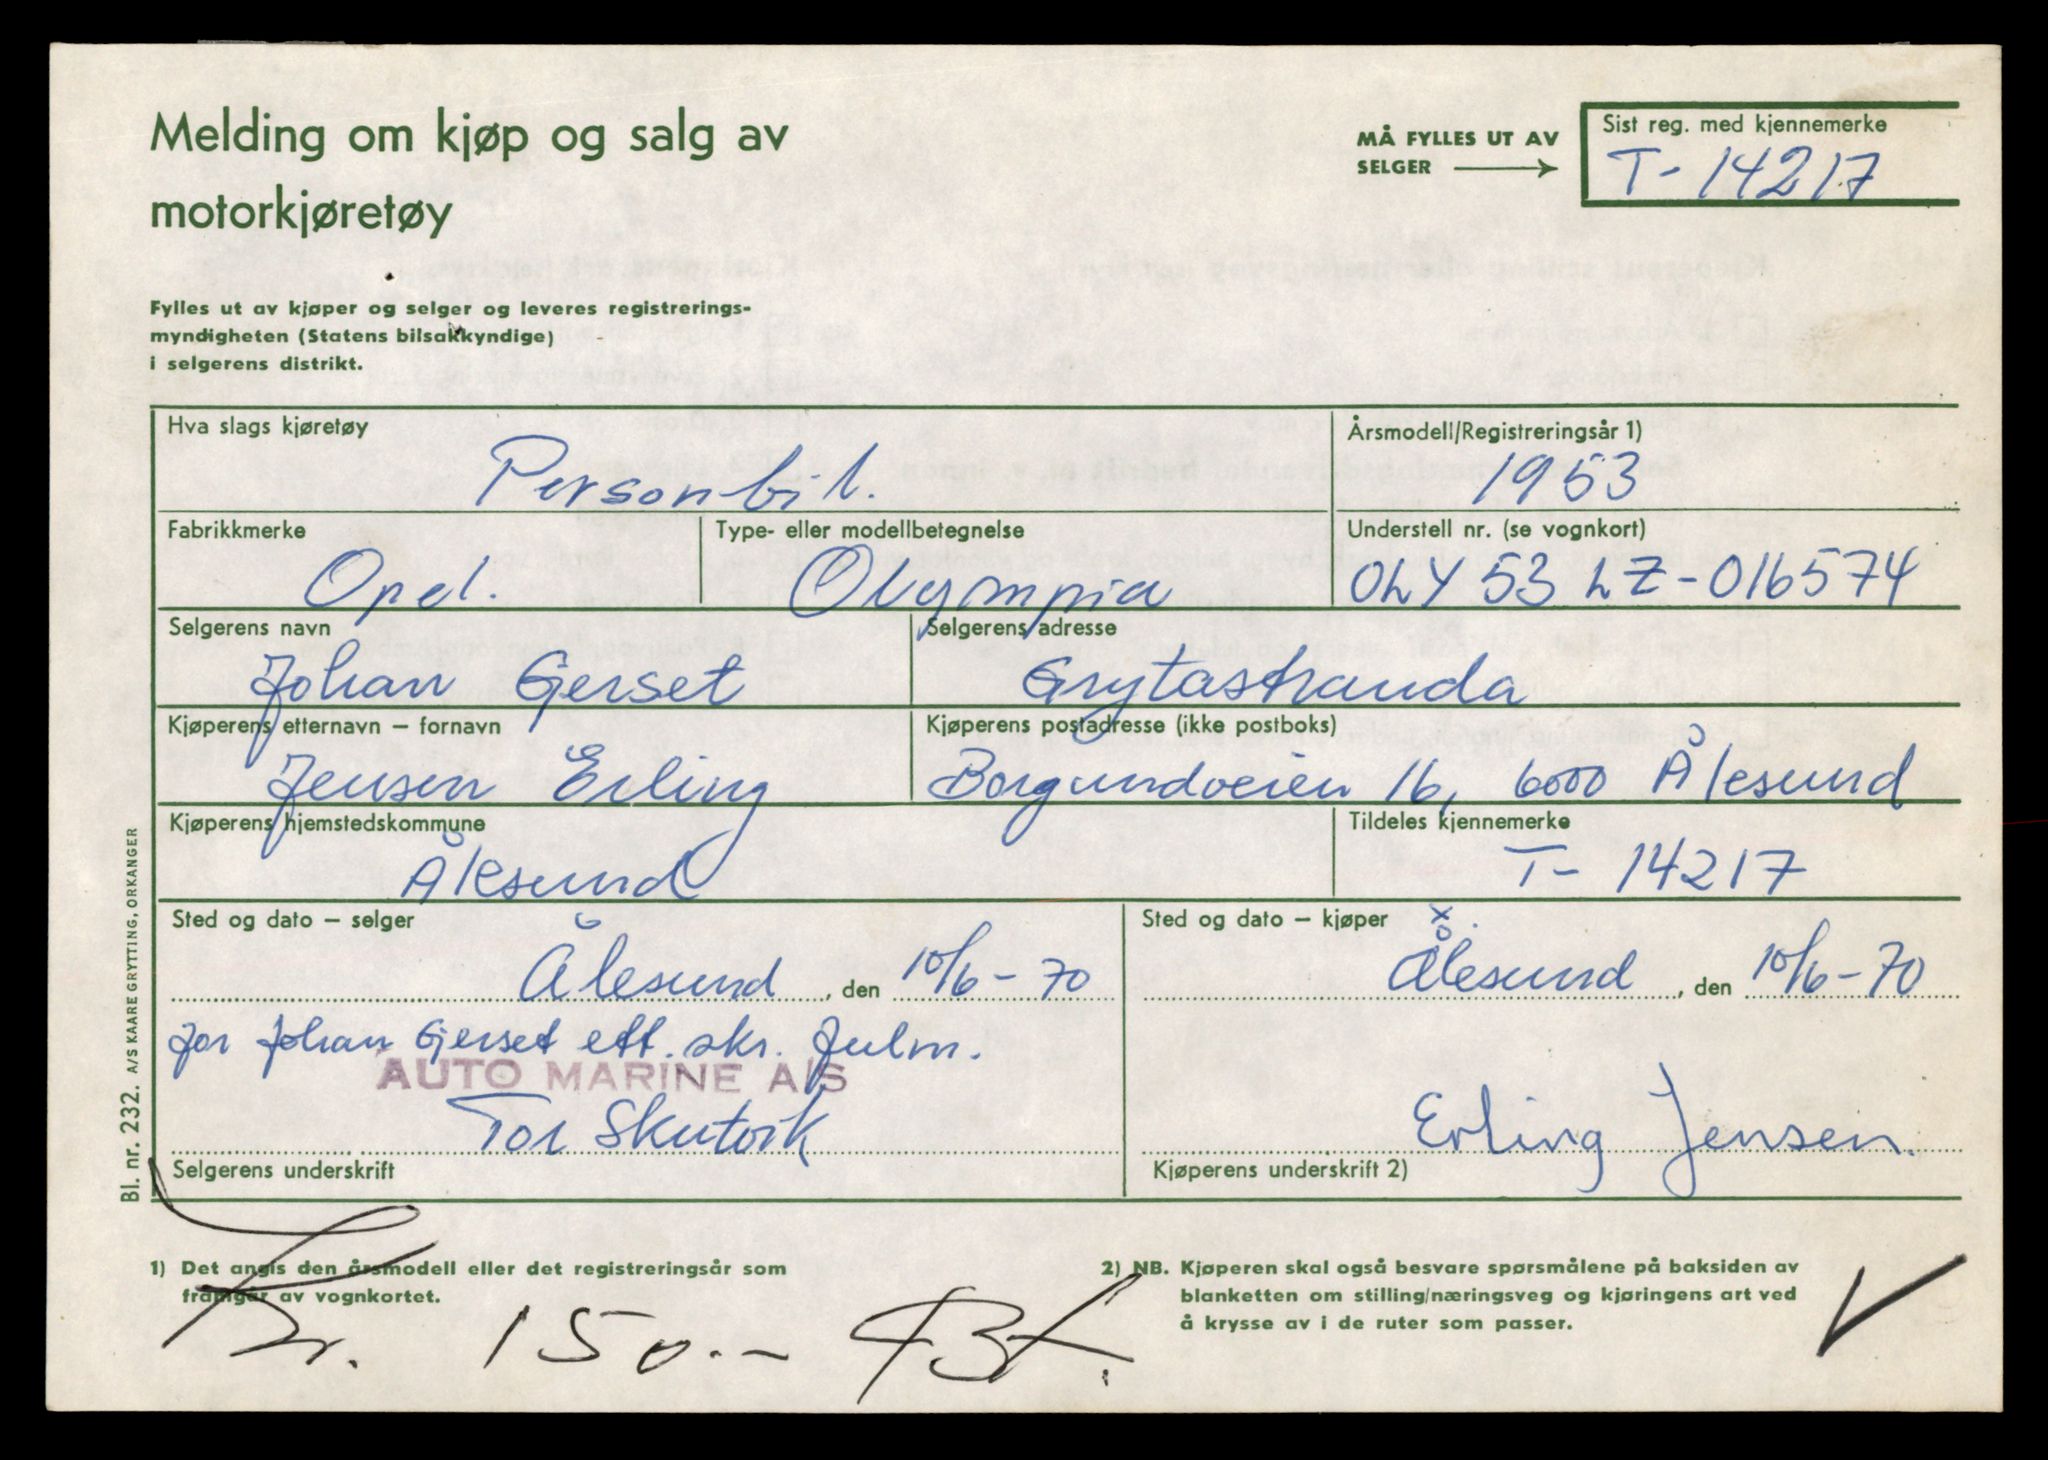 Melding om kjøp og salg av
motorkjøretøy
MÅ FYLLES UT AV
SELGER
Sist reg. med kjennemerke
T-14217
Fylles ut av kjøper og selger og leveres registrerings-
myndigheten (Statens bilsakkyndige)
i selgerens distrikt.
Hva slags kjøretøy
Personbil.
Årsmodell/Registreringsår 1)
1953
Fabrikkmerke
Opel.
Type- eller modellbetegnelse
Olympia
Understell nr. (se vognkort)
OLY 53 LZ-016574
Selgerens navn
Johan Gjerset
Selgerens adresse
Grytastranda
Kjøperens etternavn – fornavn
Jensen Erling
Kjøperens postadresse (ikke postboks)
Borgundveien 16, 6000 Ålesund
Kjøperens hjemstedskommune
Ålesund
Tildeles kjennemerke
T- 14217
Sted og dato – selger
Ålesund, den 10/6-70
Sted og dato – kjøper
x
Ålesund, den 10/6-70
for Johan Gjerset ett. skr. fulm.
AUTO MARINE A/S
Tor Skutvik
Selgerens underskrift
Erling Jensen.
Kjøperens underskrift 2)
Bl. nr. 232. A/S KAARE GRYTTING, ORKANGER
1) Det angis den årsmodell eller det registreringsår som
framgår av vognkortet.
2) NB. Kjøperen skal også besvare spørsmålene på baksiden av
blanketten om stilling/næringsveg og kjøringens art ved
å krysse av i de ruter som passer.
Kr. 150.-